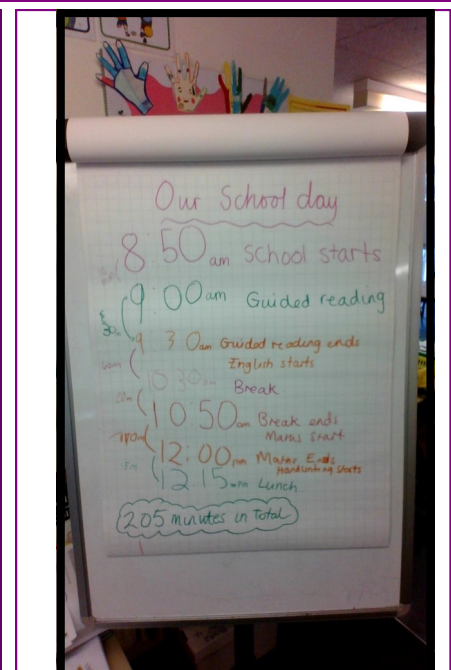 Our School day
8:50am School starts
9:00am Guided reading
30m
9 30am Guided reading ends
English starts
10 30am Break
10 50am Break ends
Maths Start
12:00pm Maths Ends
Handwriting starts
12 15pm Lunch
205 minutes in Total